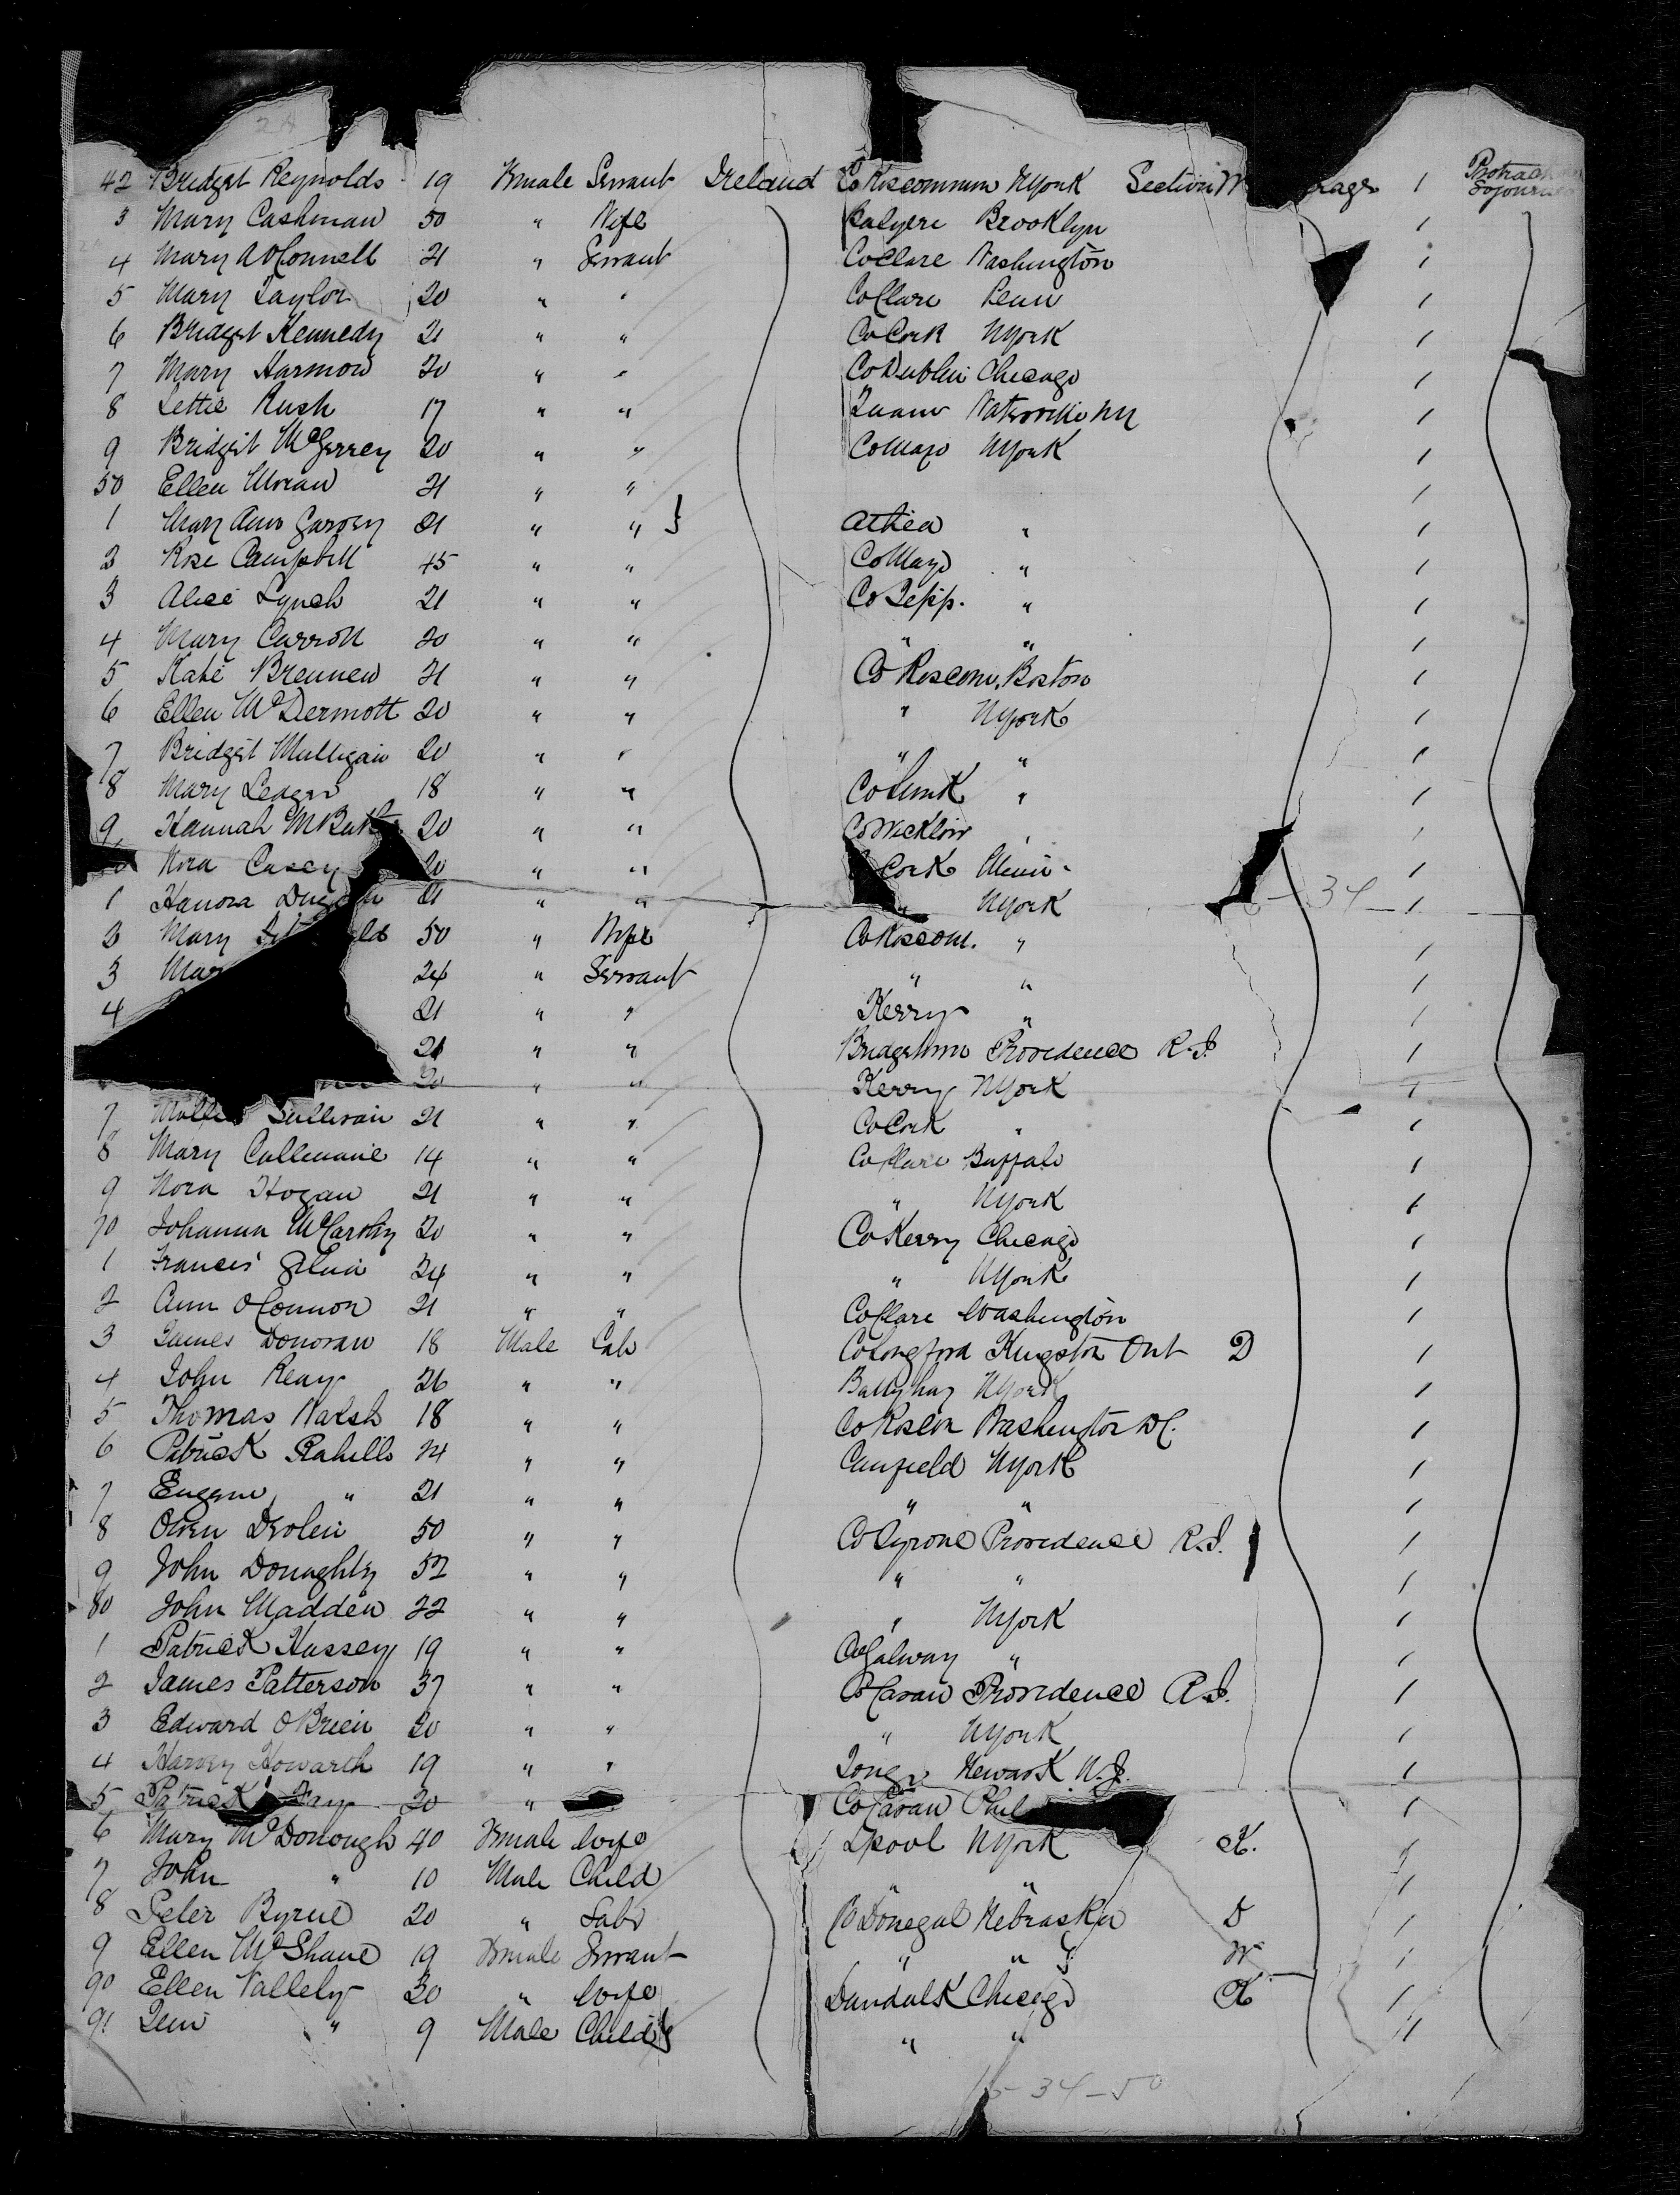 24
42 Bridget Reynolds 19 Female Servant Ireland Co Roscommon NYork Section W 1 Protracted Sojourn
3 Mary Cashman 50 " Wife Brooklyn 1
4 Mary A OConnell 21 " Servant Co Clare Washington 1
5 Mary Taylor 20 " " Co Clare Penn 1
6 Bridget Kennedy 21 " " Co Cork NYork 1
7 Mary Harmon 20 " " Co Dublin Chicago 1
8 Lettie Rush 17 " " Tuam Waterville NY 1
9 Bridget 20 " " Co Mayo NYork 1
50 Ellen Moran 21 " " 1
1 Mary Ann Garvey 21 " " } Athea " 1
2 Rose Campbell 45 " " Co Mayo " 1
3 Alice Lynch 21 " " Co Tipp. " 1
4 Mary Carroll 20 " " " " 1
5 Kate Brennen 21 " " Co Roscom. Boston 1
6 Ellen McDermott 20 " " " NYork 1
7 Bridget Mulligan 20 " " " " 1
8 Mary Leager 18 " " Co Limk " 1
9 Hannah 20 " " Co Wicklow " 1
Nora Casey 20 " " Cork Minn 1
1 Hanora 21 " " " NYork 1
2 Mary 50 " Wife Co Roscom. " 1
3 24 " Servant " " 1
4 21 " " Kerry " 1
21 " " Bridgetown Providence R.I. 1
20 " " Kerry NYork 1
7 Sullivan 21 " " Co Cork " 1
8 Mary Cullenane 14 " " Co Clare Buffalo 1
9 Nora Hogan 21 " " " NYork 1
70 Johanna McCarthy 20 " " Co Kerry Chicago 1
1 Francis 24 " " " NYork 1
2 Ann OConnor 21 " " Co Clare Washington 1
3 James Donovan 18 Male Lab Co Longford Kingston Ont D 1
4 John Reay 26 " " Ballyhay NYork 1
5 Thomas Walsh 18 " " Co Roscom Washington DC. 1
6 Patrick Rahill 24 " " Canfield NYork 1
7 Eugene " 21 " " " " 1
8 Owen Devlin 50 " " Co Tyrone Providence R.I. 1
9 John Donaghty 52 " " " " 1
80 John Madden 22 " " " NYork 1
1 Patrick Hussey 19 " " Co Galway " 1
2 James Patterson 37 " " Co Cavan Providence R.I. 1
3 Edward OBrien 20 " " " NYork 1
4 Harvey Howarth 19 " " Newark N.J. 1
5 Patrick Fay 20 " Co Cavan Phil 1
6 Mary McDonough 40 Female Wife Lpool NYork K. 1
7 John " 10 Male Child " " 1
8 Peter Byrne 20 " Lab Co Donegal Nebraska D 1
9 Ellen McShane 19 Female Servant " " W 1
90 Ellen Vallely 30 " Wife Dundalk Chicago K 1
91 " 9 Male Child " " 1
15-34-50